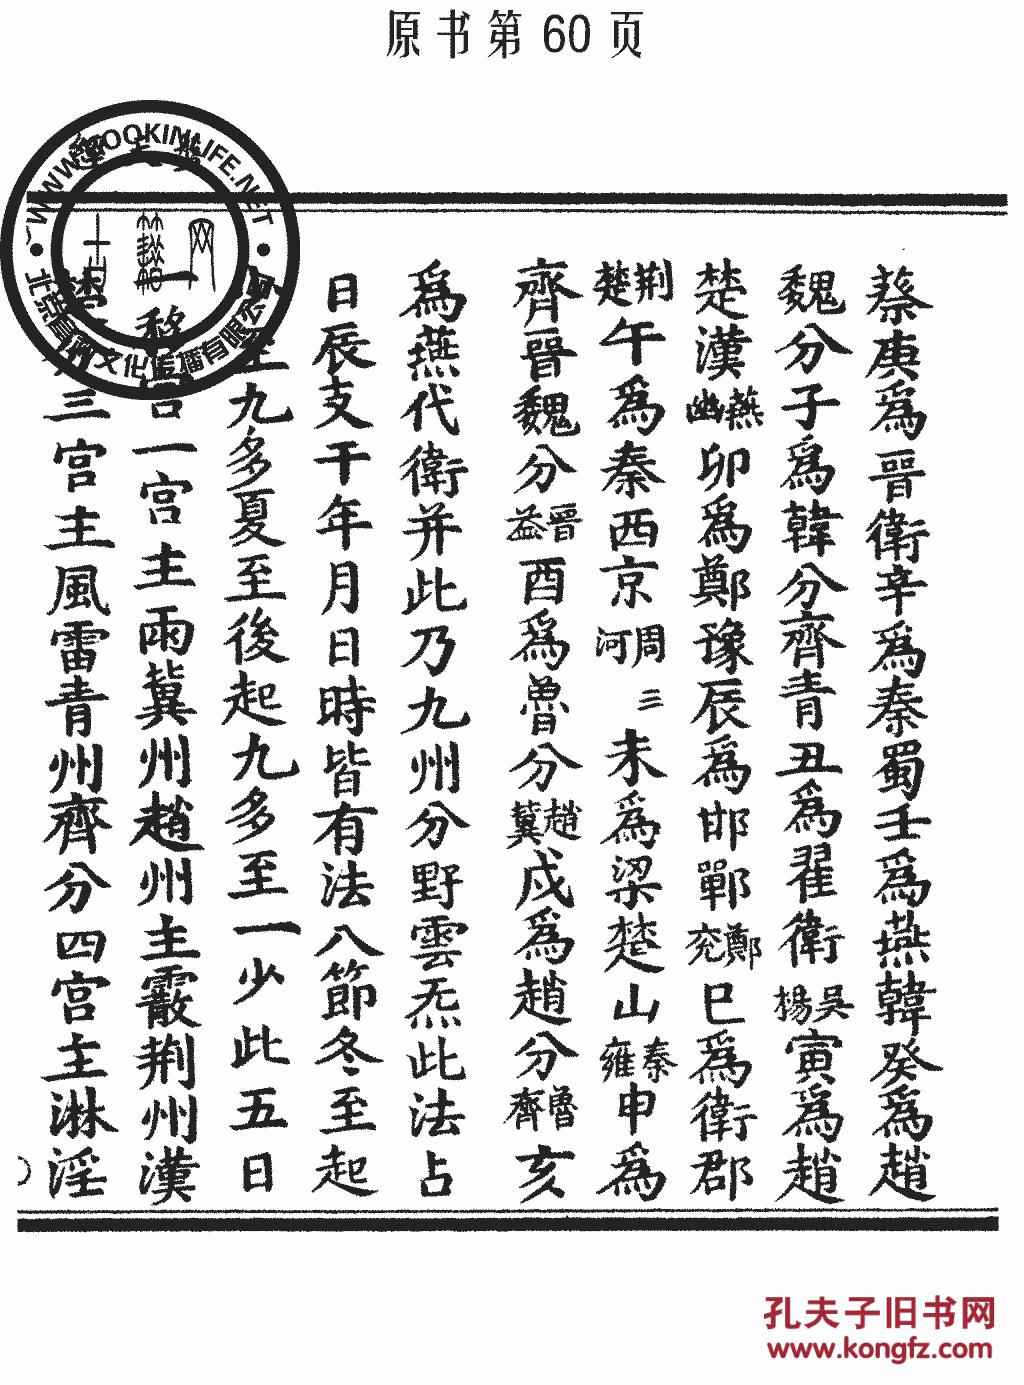 原书第60页
蔡庚爲晉衛辛爲秦蜀壬爲燕韓癸爲趙
魏分子爲韓分齊青丑爲翟衛吳楊寅爲趙
楚漢燕幽卯爲鄭豫辰爲邯鄲鄭兖巳爲衛郡
荆楚午爲秦西京周河三未爲梁楚山秦雍申爲
齊晉魏分晉益酉爲魯分趙冀戍爲趙分魯齊亥
爲燕代衛并此乃九州分野雲炁此法占
日辰支干年月日時皆有法八節冬至起
至九多夏至後起九多至一少此五日
一宮主雨冀州趙州主霰荆州漢
三宮主風雷青州齊分四宮主淋淫
WWW.BOOKINLIFE.NET
孔夫子旧书网
www.kongfz.com